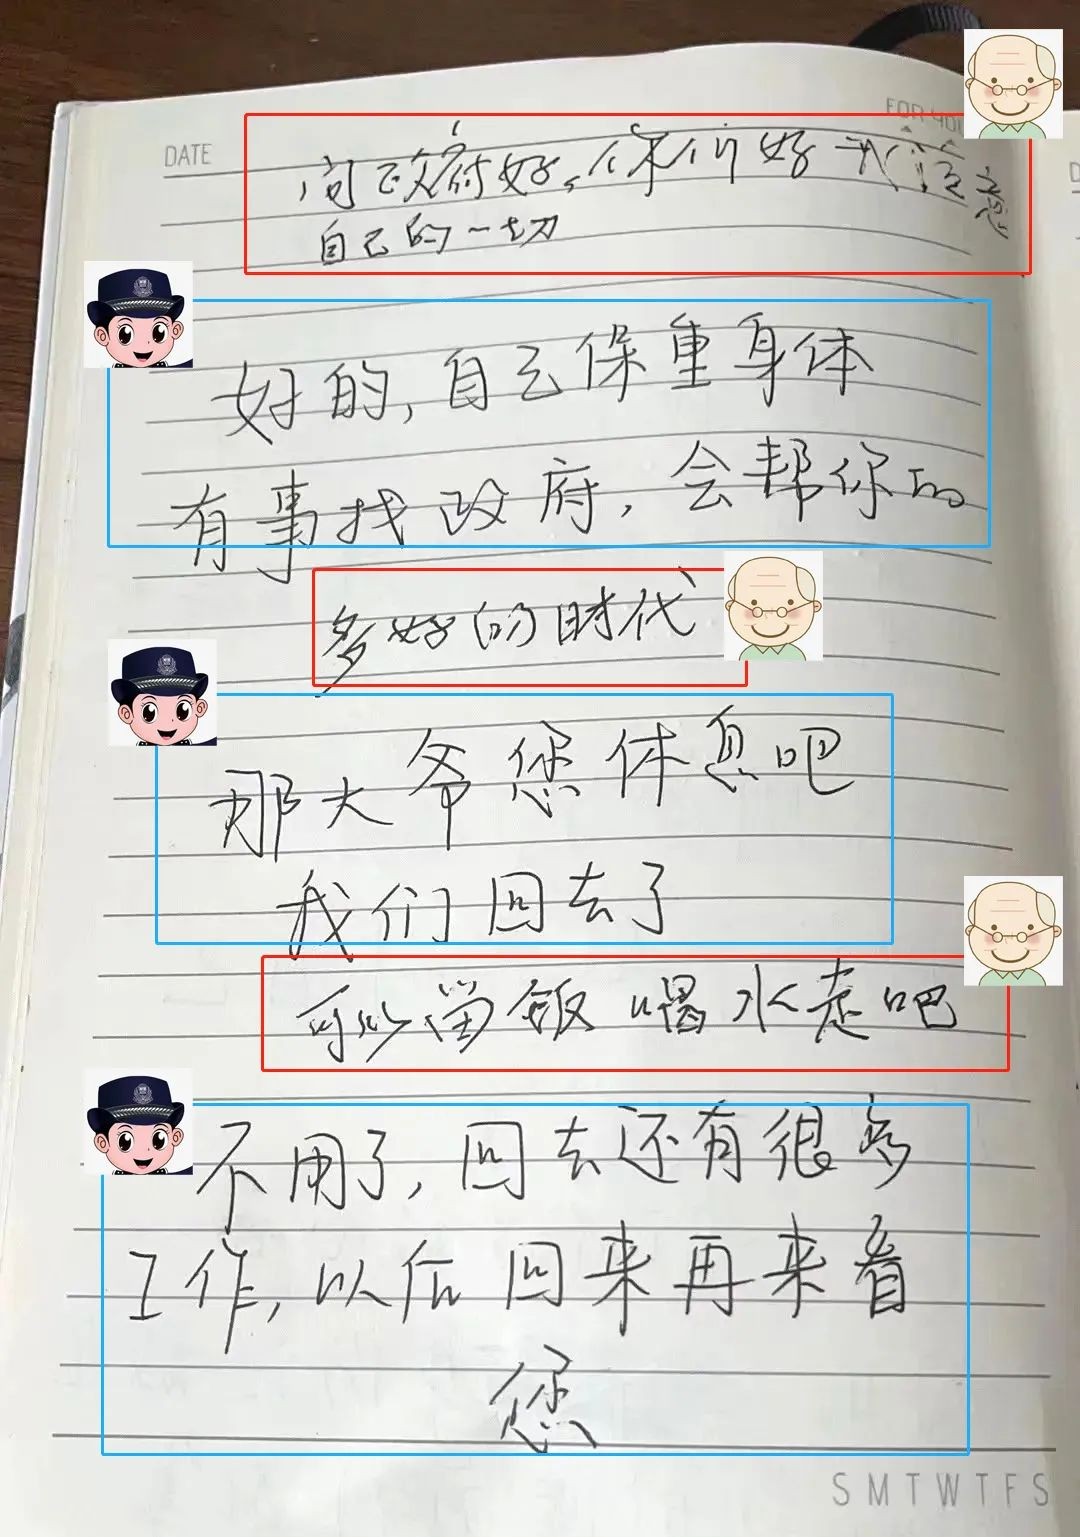 FOR YOU
DATE
问政府好。你们好 我注意
自己的一切
好的,自己保重身体
有事找政府,会帮你的
多好的时代
那大爷您休息吧
我们回去了
可以留饭 喝水走吧
不用了,回去还有很多
工作,以后回来再来看
您
S M T W T F S